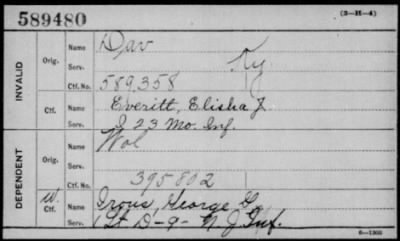 589480 (3-H-4)
INVALID
Orig.
Name Day
Serv. Ky
Ctf. No. 589,358
Ctf.
Name Everitt, Elisha J.
Serv. I 23 Mo. Inf.
DEPENDENT
Orig.
Name Wol
Serv.
Ctf. No. 395802
W.
Ctf.
Name Irons, George G.
Serv. 1 Lt. D-9- N J Inf.
6-1303